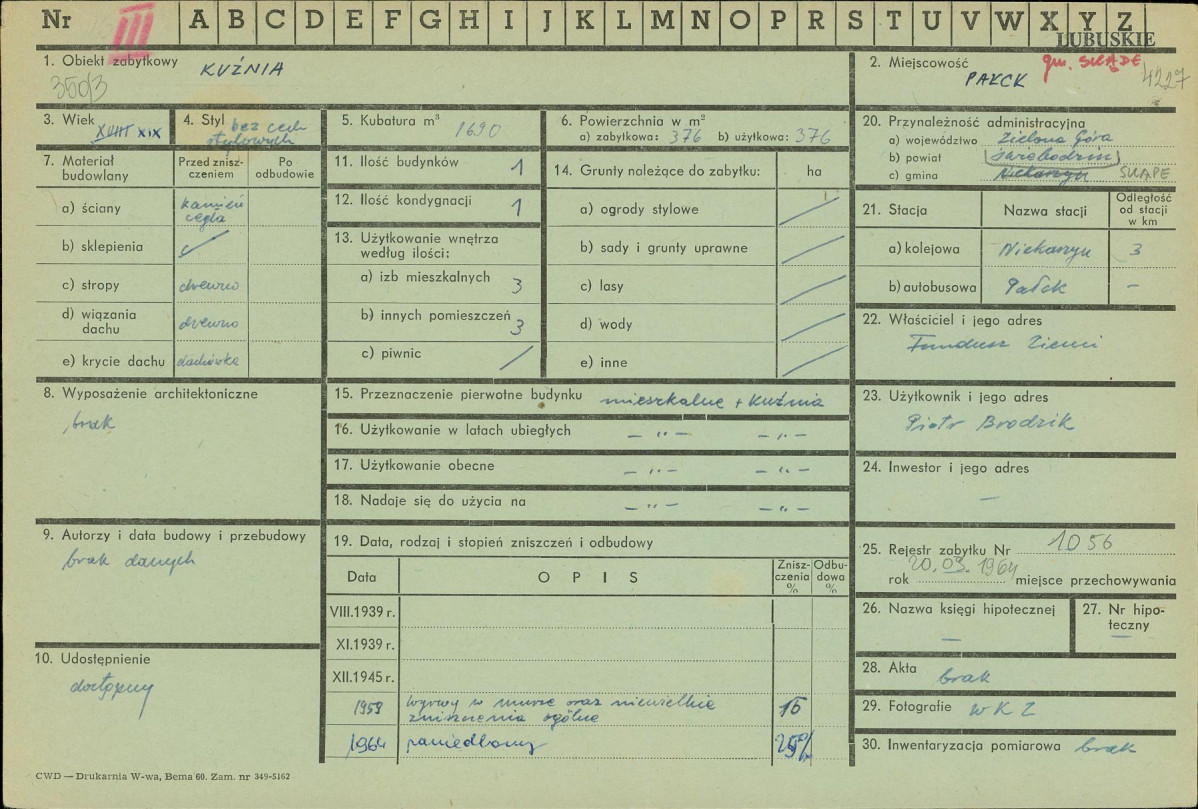 Nr III A B C D E F G H I J K L M N O P R S T U V W X Y Z
LUBUSKIE
1. Obiekt zabytkowy KUŹNIA
350/3
2. Miejscowość PAŁCK gm. SKĄPE 4227
3. Wiek XVIII XIX
4. Styl bez cech
stylowych
5. Kubatura m³ 1690
6. Powierzchnia w m²
a) zabytkowa: 376 b) użytkowa: 376
7. Materiał
budowlany
Przed znisz-
czeniem
Po
odbudowie
a) ściany kamień
cegła
b) sklepienia
c) stropy drewno
d) wiązania
dachu drewno
e) krycie dachu dachówka
8. Wyposażenie architektoniczne
brak
9. Autorzy i data budowy i przebudowy
brak danych
10. Udostępnienie
dostępny
11. Ilość budynków 1
12. Ilość kondygnacji 1
13. Użytkowanie wnętrza
według ilości:
a) izb mieszkalnych 3
b) innych pomieszczeń 3
c) piwnic /
14. Grunty należące do zabytku: ha
a) ogrody stylowe /
b) sady i grunty uprawne /
c) lasy /
d) wody /
e) inne /
15. Przeznaczenie pierwotne budynku mieszkalne + kuźnia
16. Użytkowanie w latach ubiegłych — „ — — „ —
17. Użytkowanie obecne — „ — — „ —
18. Nadaje się do użycia na — „ — — „ —
19. Data, rodzaj i stopień zniszczeń i odbudowy
Data OPIS Znisz-
czenia
% Odbu-
dowa
%
VIII.1939 r.
XI.1939 r.
XII.1945 r.
1959 wyrwy w murze oraz niewielkie
zniszczenia ogólne 15
1964 zaniedbany 25%
20. Przynależność administracyjna
a) województwo Zielona Góra
b) powiat świebodzin
c) gmina Niekarzyn SKĄPE
21. Stacja Nazwa stacji Odległość
od stacji
w km
a) kolejowa Niekarzyn 3
b) autobusowa Pałck —
22. Właściciel i jego adres
Fundusz Ziemi
23. Użytkownik i jego adres
Piotr Brodzik
24. Inwestor i jego adres
—
25. Rejestr zabytku Nr 1056
rok 20.03.1964 miejsce przechowywania
26. Nazwa księgi hipotecznej
—
27. Nr hipo-
teczny
—
28. Akta brak
29. Fotografie WKZ
30. Inwentaryzacja pomiarowa brak
CWD — Drukarnia W-wa, Bema 60. Zam. nr 349-5162